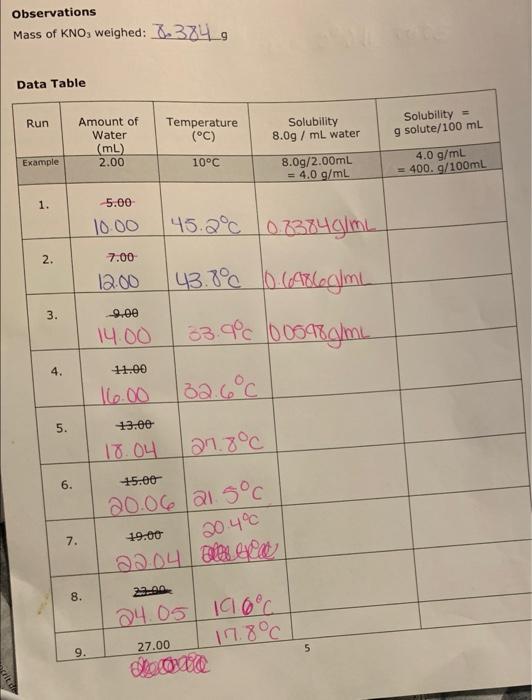 Observations
Mass of KNO₃ weighed: 8.384 g
Data Table
Run Amount of Water (mL) Temperature (°C) Solubility 8.0g / mL water Solubility = g solute/100 mL
Example 2.00 10°C 8.0g/2.00mL = 4.0 g/mL 4.0 g/mL = 400. g/100mL
1. 5.00
10.00 45.2°C 0.8384g/mL
2. 7.00
12.00 43.8°C 0.6986g/mL
3. 9.00
14.00 33.9°C 0.0598g/mL
4. 11.00
16.00 32.6°C
5. 13.00
18.04 27.8°C
6. 15.00
20.06 21.5°C
7. 19.00 20.4°C
22.04
8. 23.00
24.05 19.6°C
9. 27.00 17.8°C
5